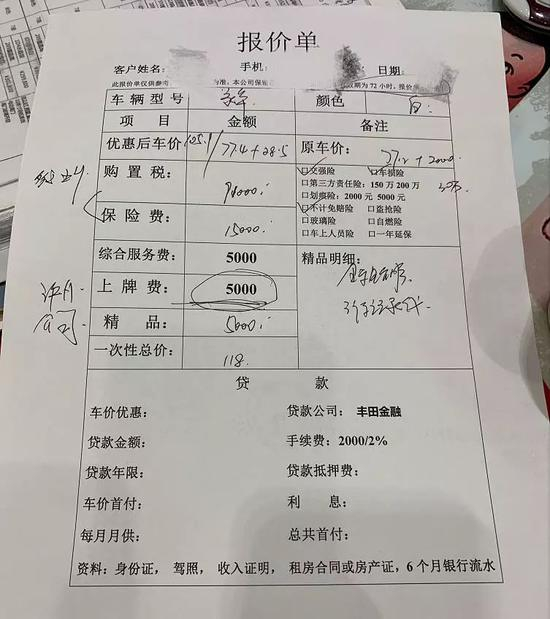 报价单
客户姓名: 手机: 日期:
此报价单仅供参考 为准，本公司保 期为 72 小时，报价
车辆型号 颜色 白
项 目 金额 备注
优惠后车价: 105.9/77.4+28.5 原车价: 77.2+2000
购置税: 94000 ☐交强险 ☐车损险
☐第三方责任险：150 万 200 万
☐划痕险：2000 元 5000 元
保险费: 15000 ☐不计免赔险 ☐盗抢险
☐玻璃险 ☐自燃险
☐车上人员险 ☐一年延保
综合服务费: 5000 精品明细:
上牌费: 5000
公司
精 品: 5000
一次性总价: 118.
贷 款
车价优惠： 贷款公司：丰田金融
贷款金额： 手续费：2000/2%
贷款年限： 贷款抵押费：
车价首付： 利 息：
每月月供： 总共首付：
资料：身份证， 驾照， 收入证明， 租房合同或房产证，6 个月银行流水